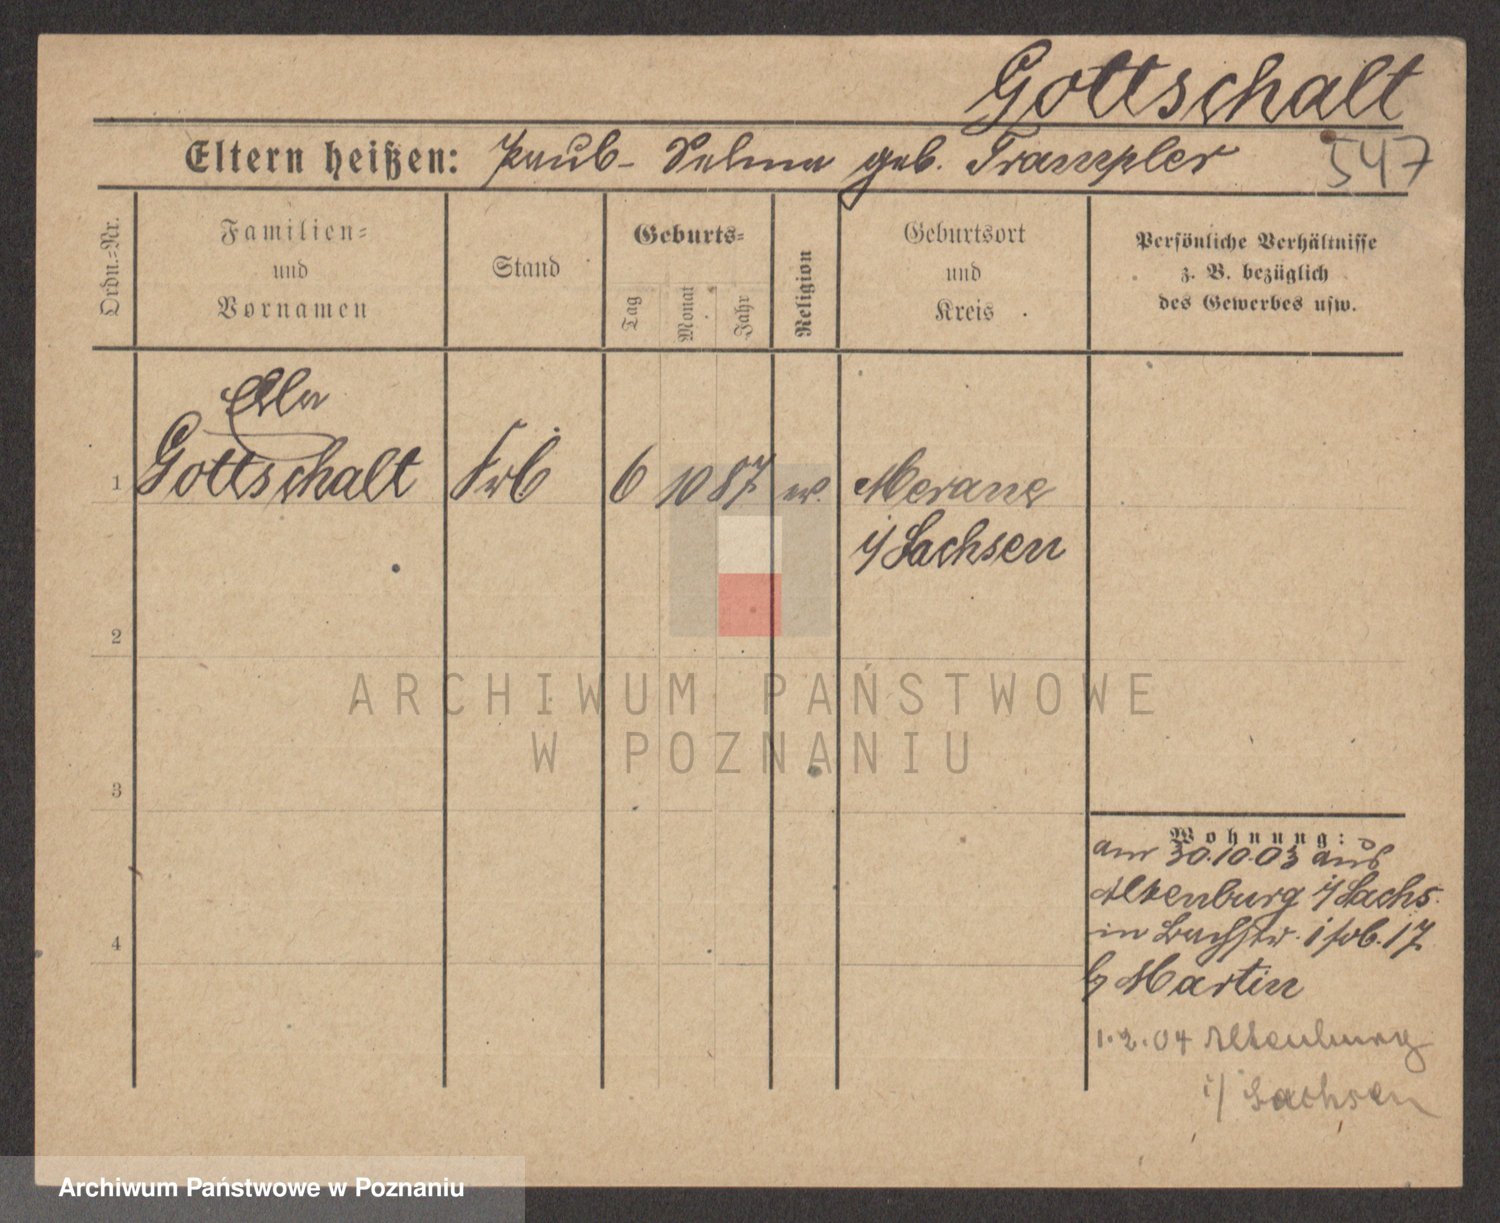 Gottschalt
547
Eltern heißen: Paul - Selma geb. Trampler
Ordn.=Nr.
Familien=
und
Vornamen
Stand
Geburts=
Tag
Monat
Jahr
Religion
Geburtsort
und
Kreis
Persönliche Verhältnisse
z. B. bezüglich
des Gewerbes usw.
Ella
1 Gottschalt 6 10 87 ev. Merane
i/ Sachsen
2
3
4
Wohnung:
am 30.10.03 aus
Altenburg i/ Sachs.
in 17
b/ Martin
1.2.04 Altenburg
i/ Sachsen
ARCHIWUM PAŃSTWOWE
W POZNANIU
Archiwum Państwowe w Poznaniu